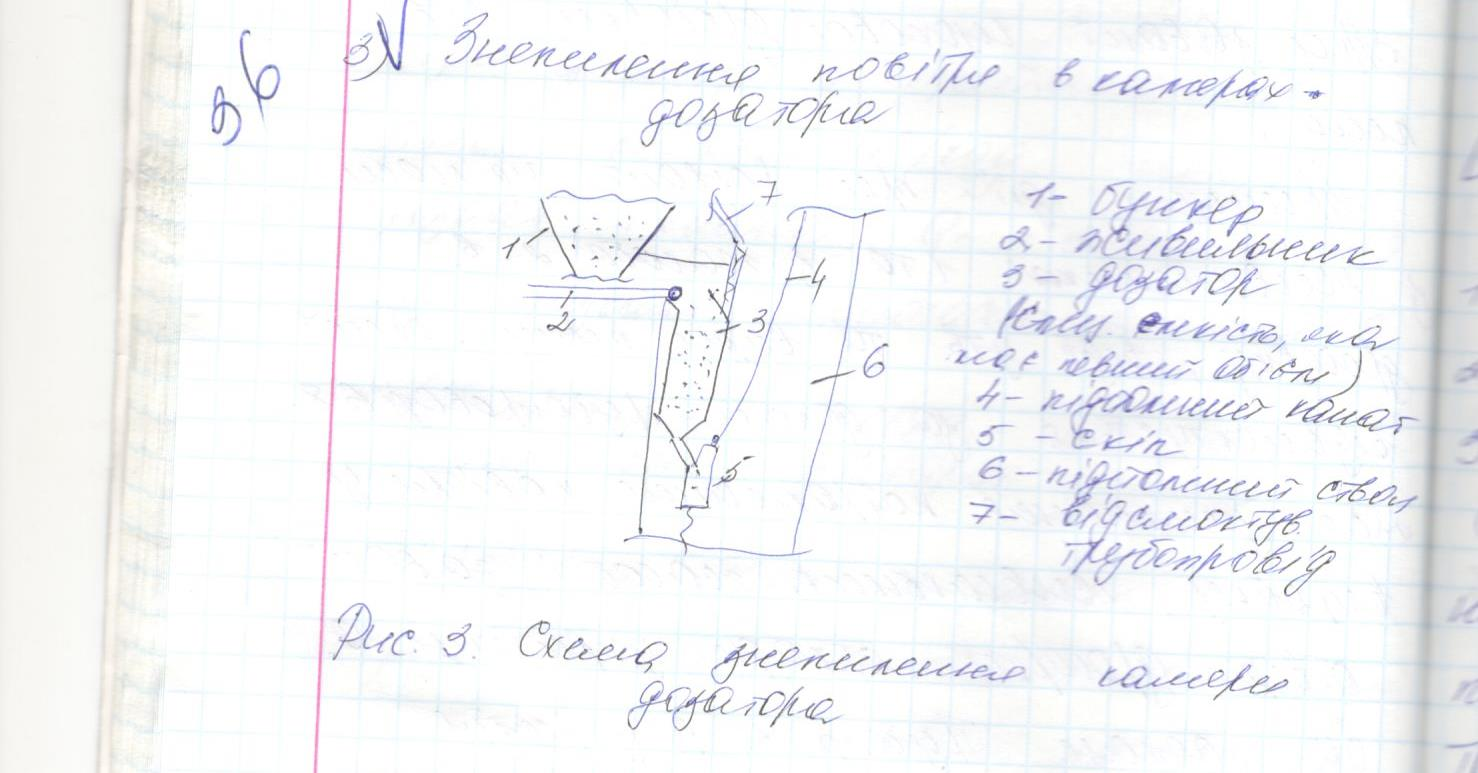 36
3) Знепилення повітря в камерах-
дозатора
1- бункер
2- живильник
3- дозатор
(спец. ємкість, яка
має певний об'єм)
4- підйомний канат
5 - скіп
6- підйомний ствол
7- відсмоктув.
трубопровід
1
2
3
4
5
6
7
Рис. 3. Схема знепилення камери
дозатора